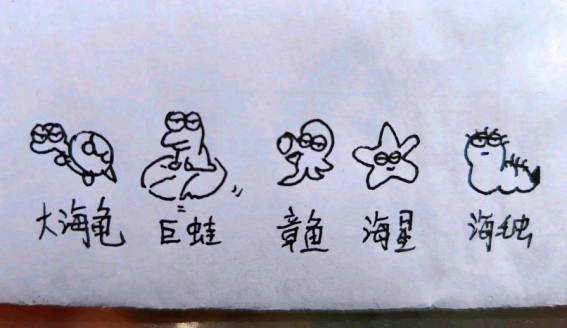 大海龟 巨蛙 章鱼 海星 海毛虫